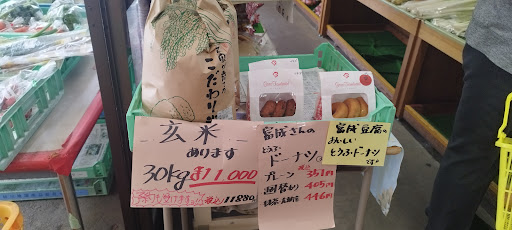 こだわり
玄米
あります
30kg ¥11,000
(税込)11880
富成さんの
とうふ
ドーナツ。
プレーン 351円
週替り 405円
446円
富成豆腐の
おいしい
とうふドーナツ
です♪